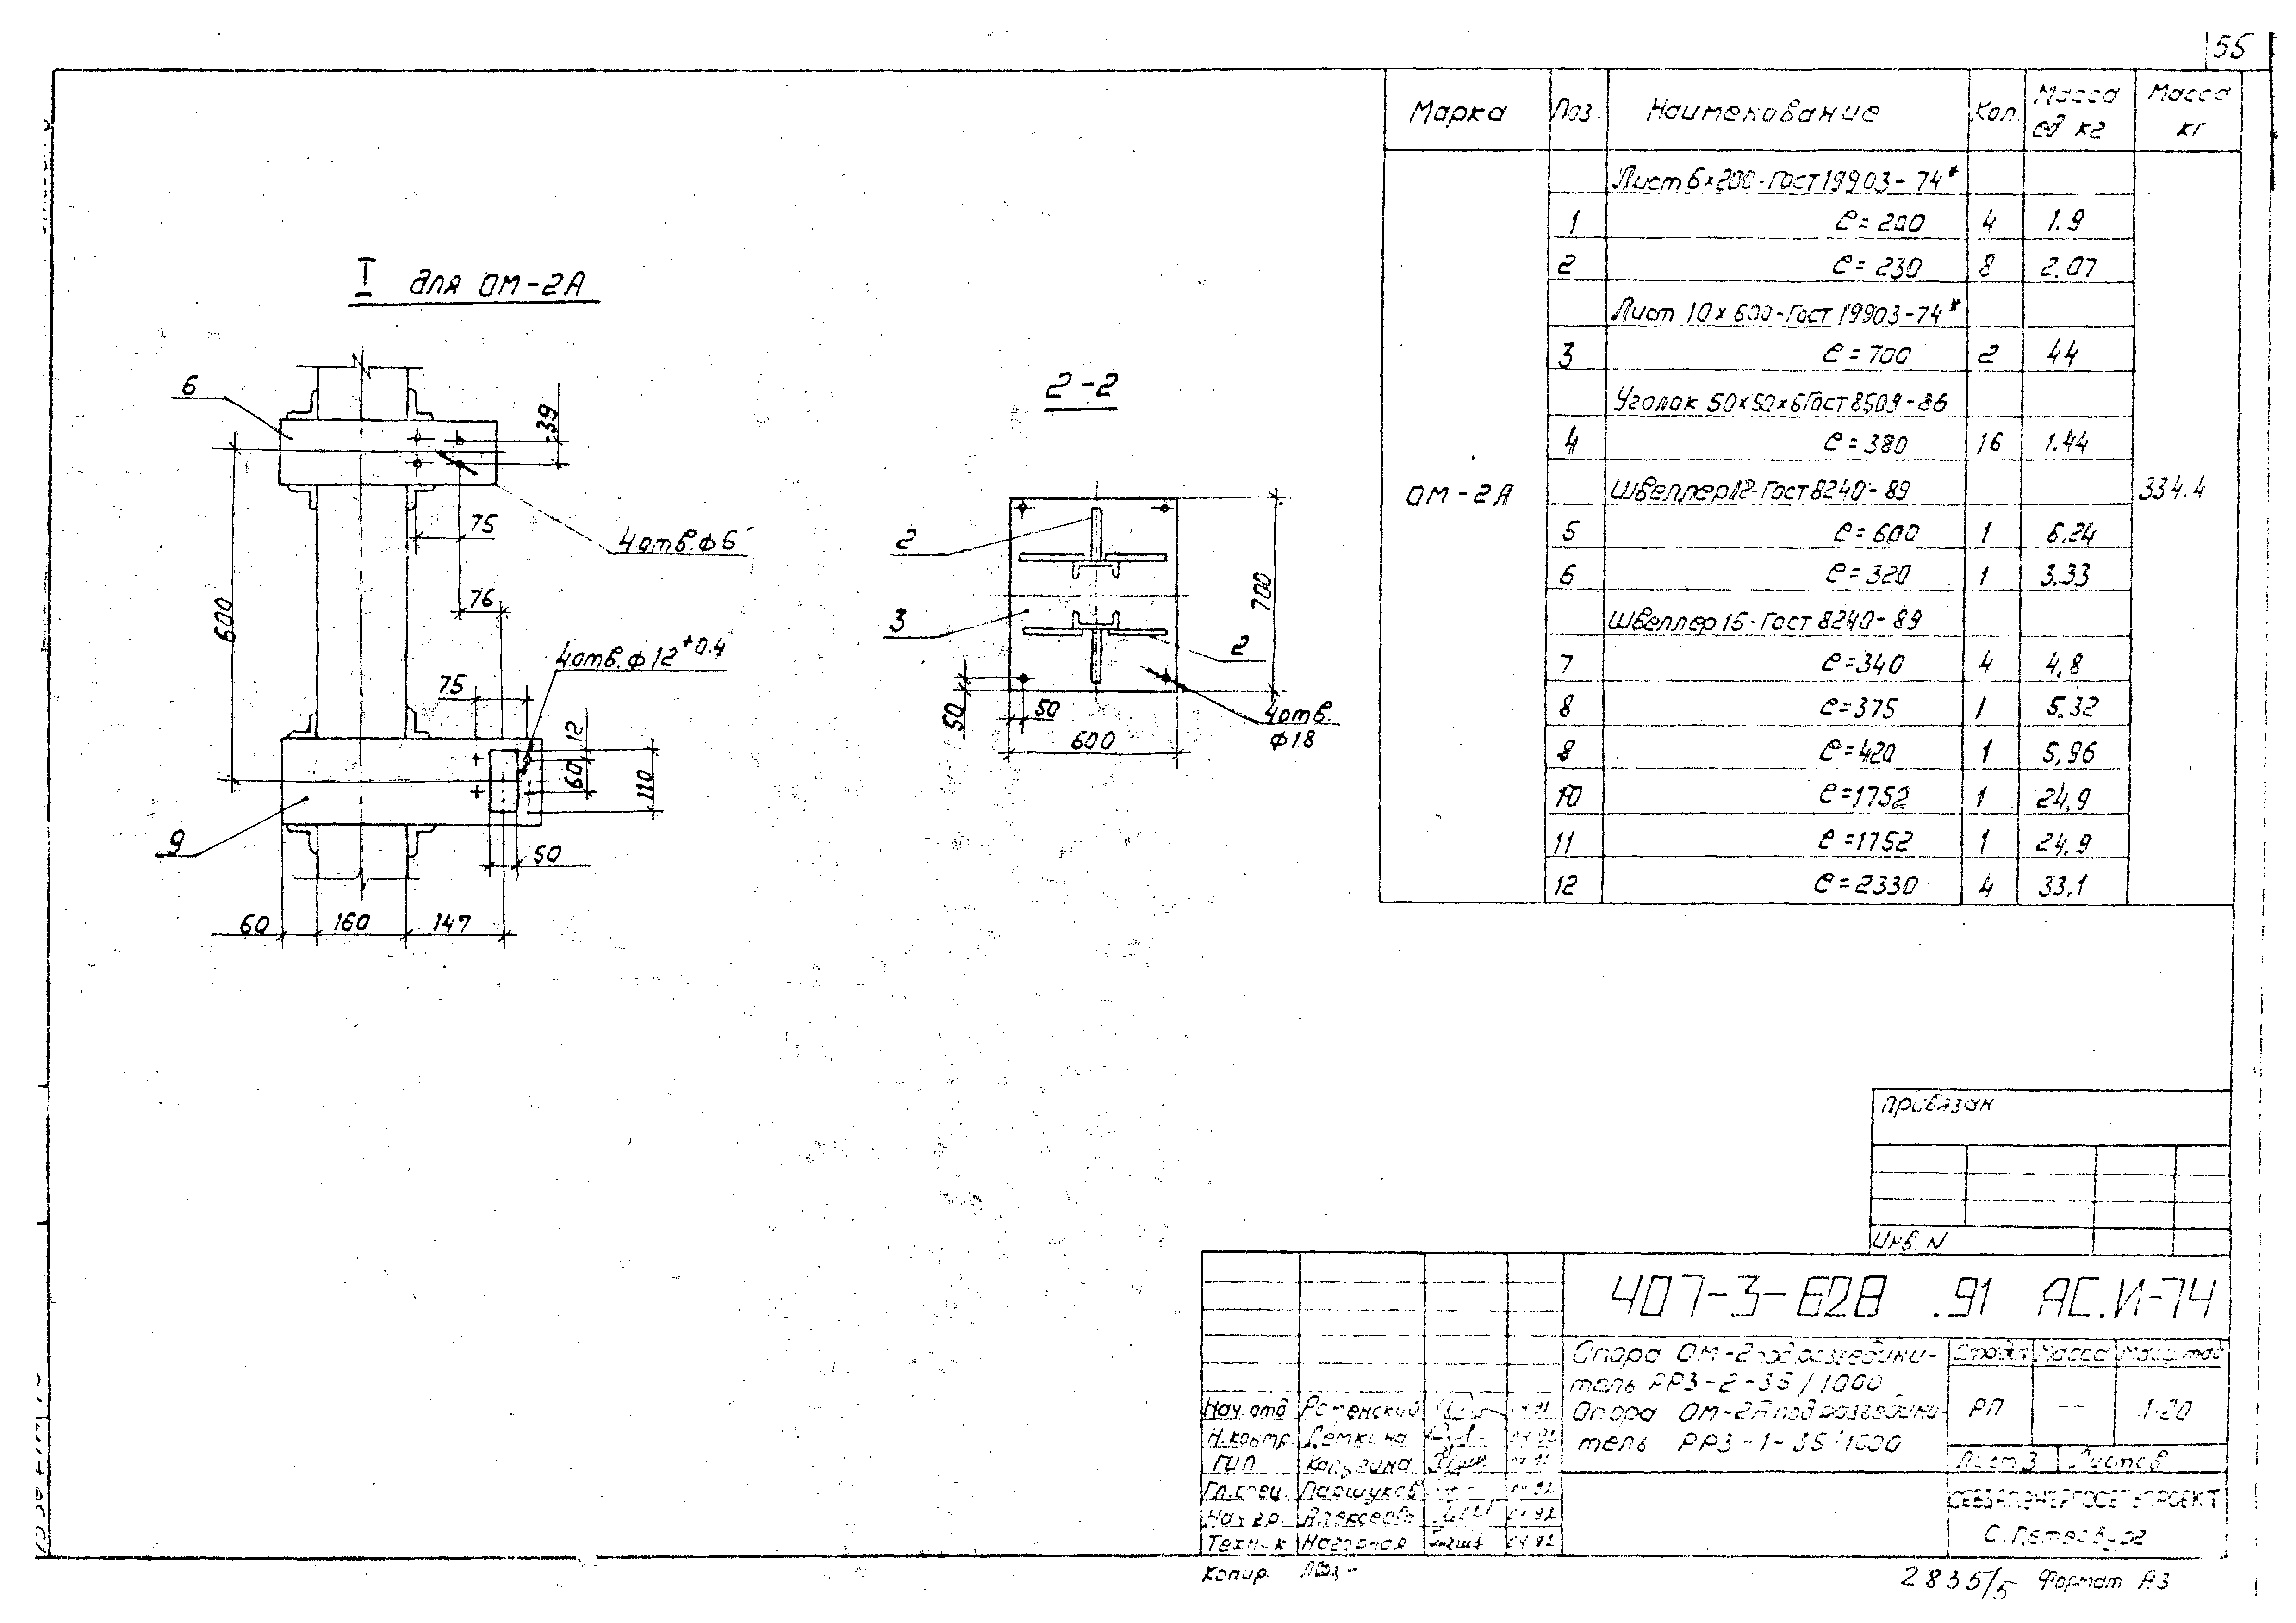 55
I для ОМ-2А
6
39
75
4 отв. ф 6
600
76
4 отв. ф 12 +0.4
75
12
60
110
9
50
60 160 147
2-2
2
3
2
700
50
50
600
4 отв.
ф 18
Марка Поз. Наименование Кол. Масса ед кг Масса кг
Лист 6×200-Гост 19903-74*
1 ℓ=200 4 1.9
2 ℓ=230 8 2.07
Лист 10×600-Гост 19903-74*
3 ℓ=700 2 44
Уголок 50×50×6 Гост 8509-86
4 ℓ=380 16 1.44
ОМ-2А Швеллер 12-Гост 8240-89 334.4
5 ℓ=600 1 6.24
6 ℓ=320 1 3.33
Швеллер 16-Гост 8240-89
7 ℓ=340 4 4,8
8 ℓ=375 1 5.32
8 ℓ=420 1 5,96
10 ℓ=1752 1 24,9
11 ℓ=1752 1 24.9
12 ℓ=2330 4 33,1
Привязан
Инв. N
407-3-628 .91 АС.И-74
Опора ОМ-2 под разъедини-
тель РРЗ-2-35/1000
Опора ОМ-2А под разъедини-
тель РРЗ-1-35/1000
Стадия Масса Масштаб
РП — 1:20
Лист 3 Листов
СЕВЗАПЭНЕРГОСЕТЬПРОЕКТ
С.Петербург
Нач. отд Роменский
Н.контр.
ГИП
Гл.спец. Паршуков
Нач.гр.
Техник Нагорная
Копир.
2835/5 Формат А3